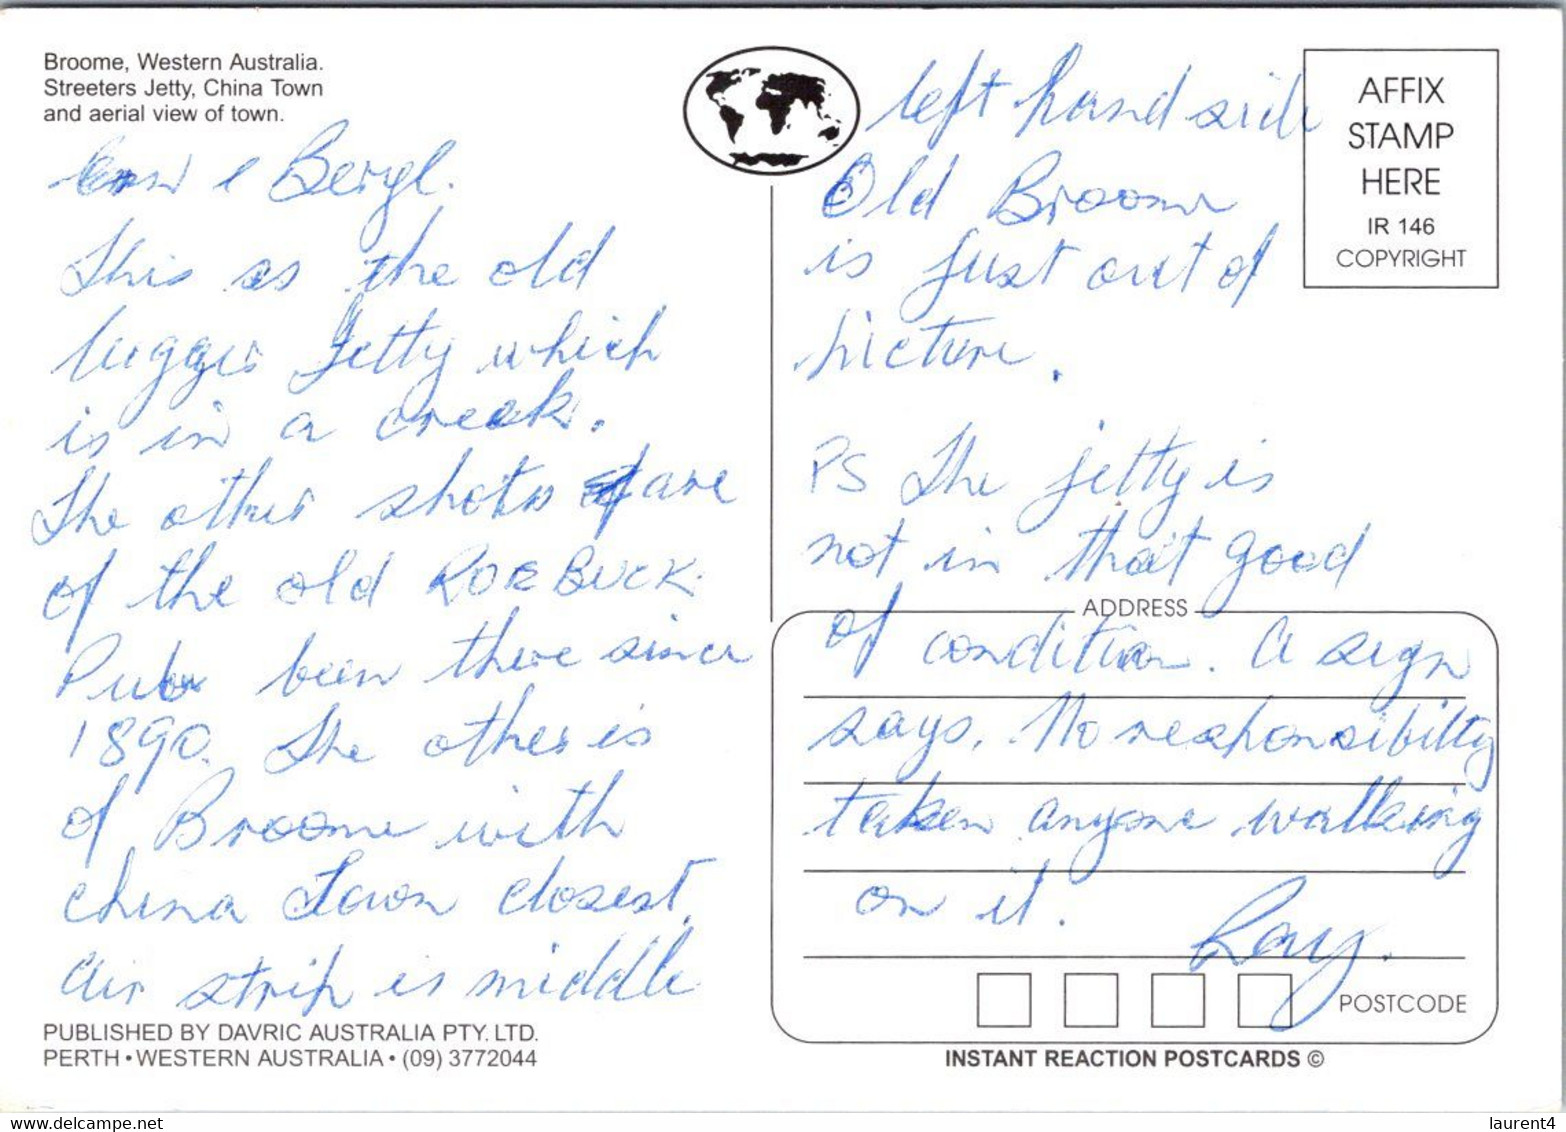 Broome, Western Australia.
Streeters Jetty, China Town
and aerial view of town.
& Beryl.
This is the old
lugger Jetty which
is in a creek.
The other shots are
of the old ROEBUCK
Pub been there since
1890. The other is
of Broome with
China Town closest.
Air strip is middle
PUBLISHED BY DAVRIC AUSTRALIA PTY. LTD.
PERTH • WESTERN AUSTRALIA • (09) 3772044
left hand side
Old Broome
is just out of
picture.
PS The jetty is
not in that good
of condition. A sign
says. No responsibilty
taken anyone walking
on it.
Ray.
AFFIX
STAMP
HERE
IR 146
COPYRIGHT
ADDRESS
POSTCODE
INSTANT REACTION POSTCARDS ©
www.delcampe.net
laurent4